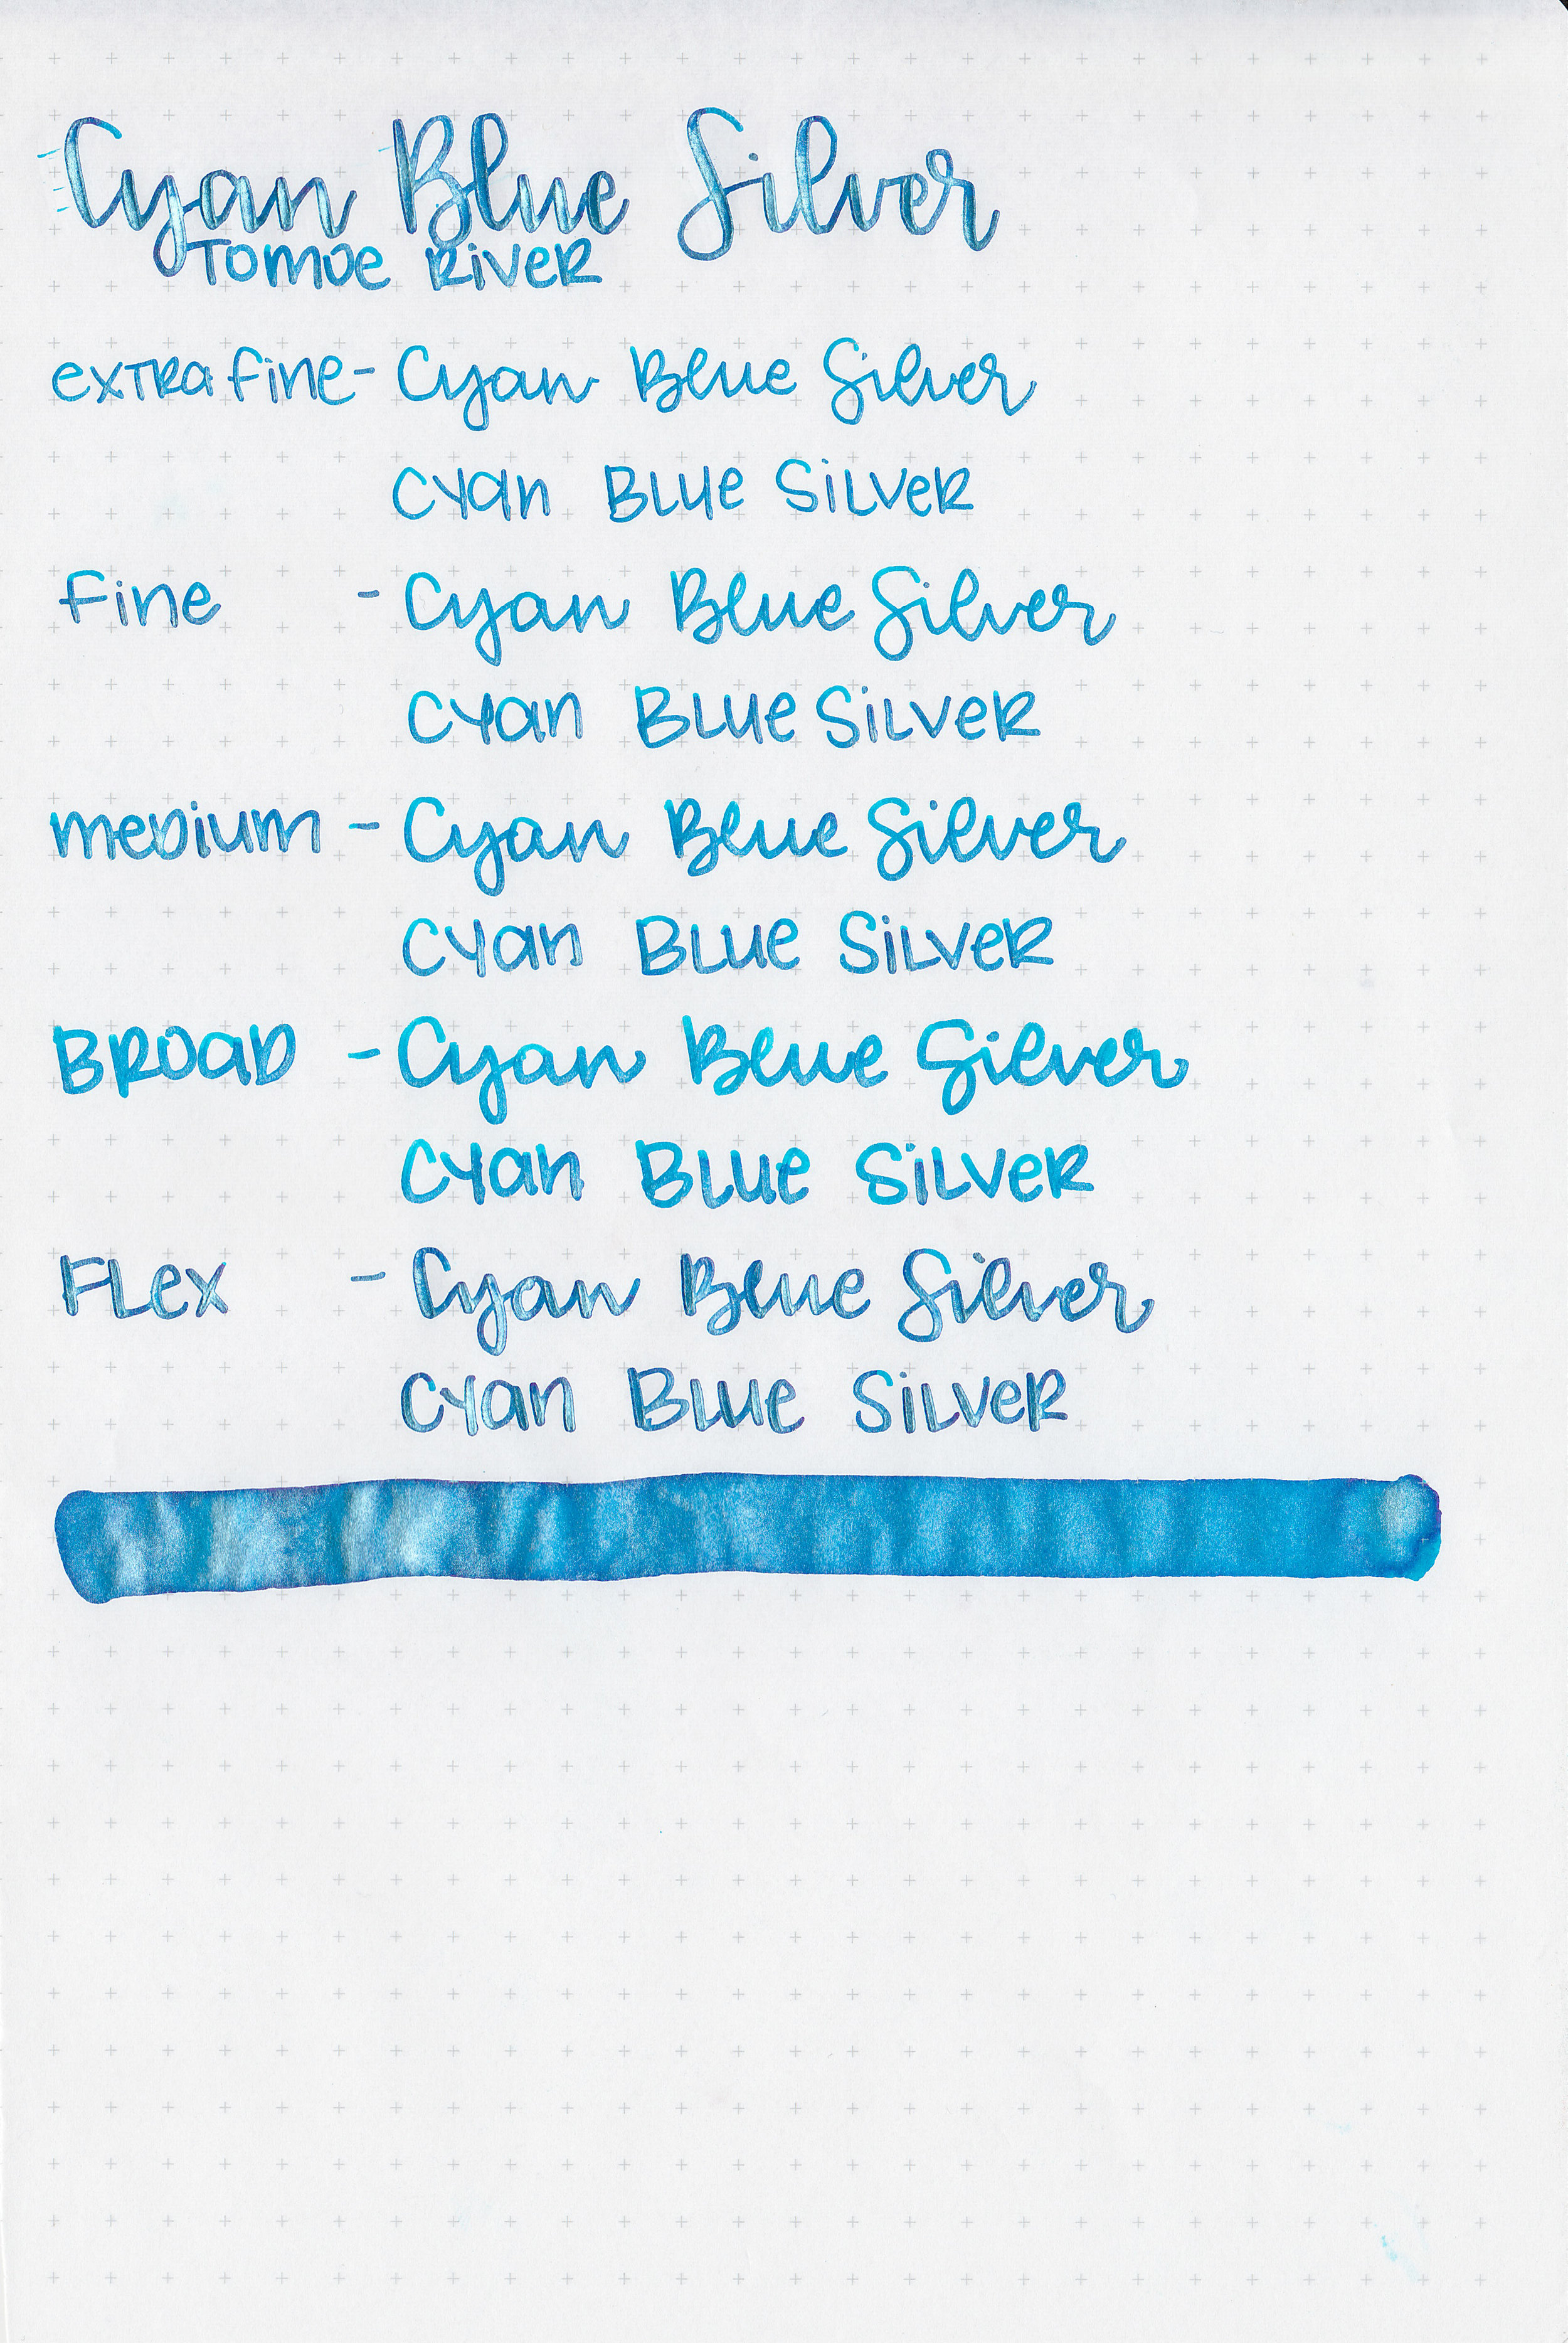 Cyan Blue Silver
Tomoe River
extra fine - Cyan Blue Silver
Cyan Blue Silver
Fine - Cyan Blue Silver
Cyan Blue Silver
medium - Cyan Blue Silver
Cyan Blue Silver
Broad - Cyan Blue Silver
Cyan Blue Silver
Flex - Cyan Blue Silver
Cyan Blue Silver